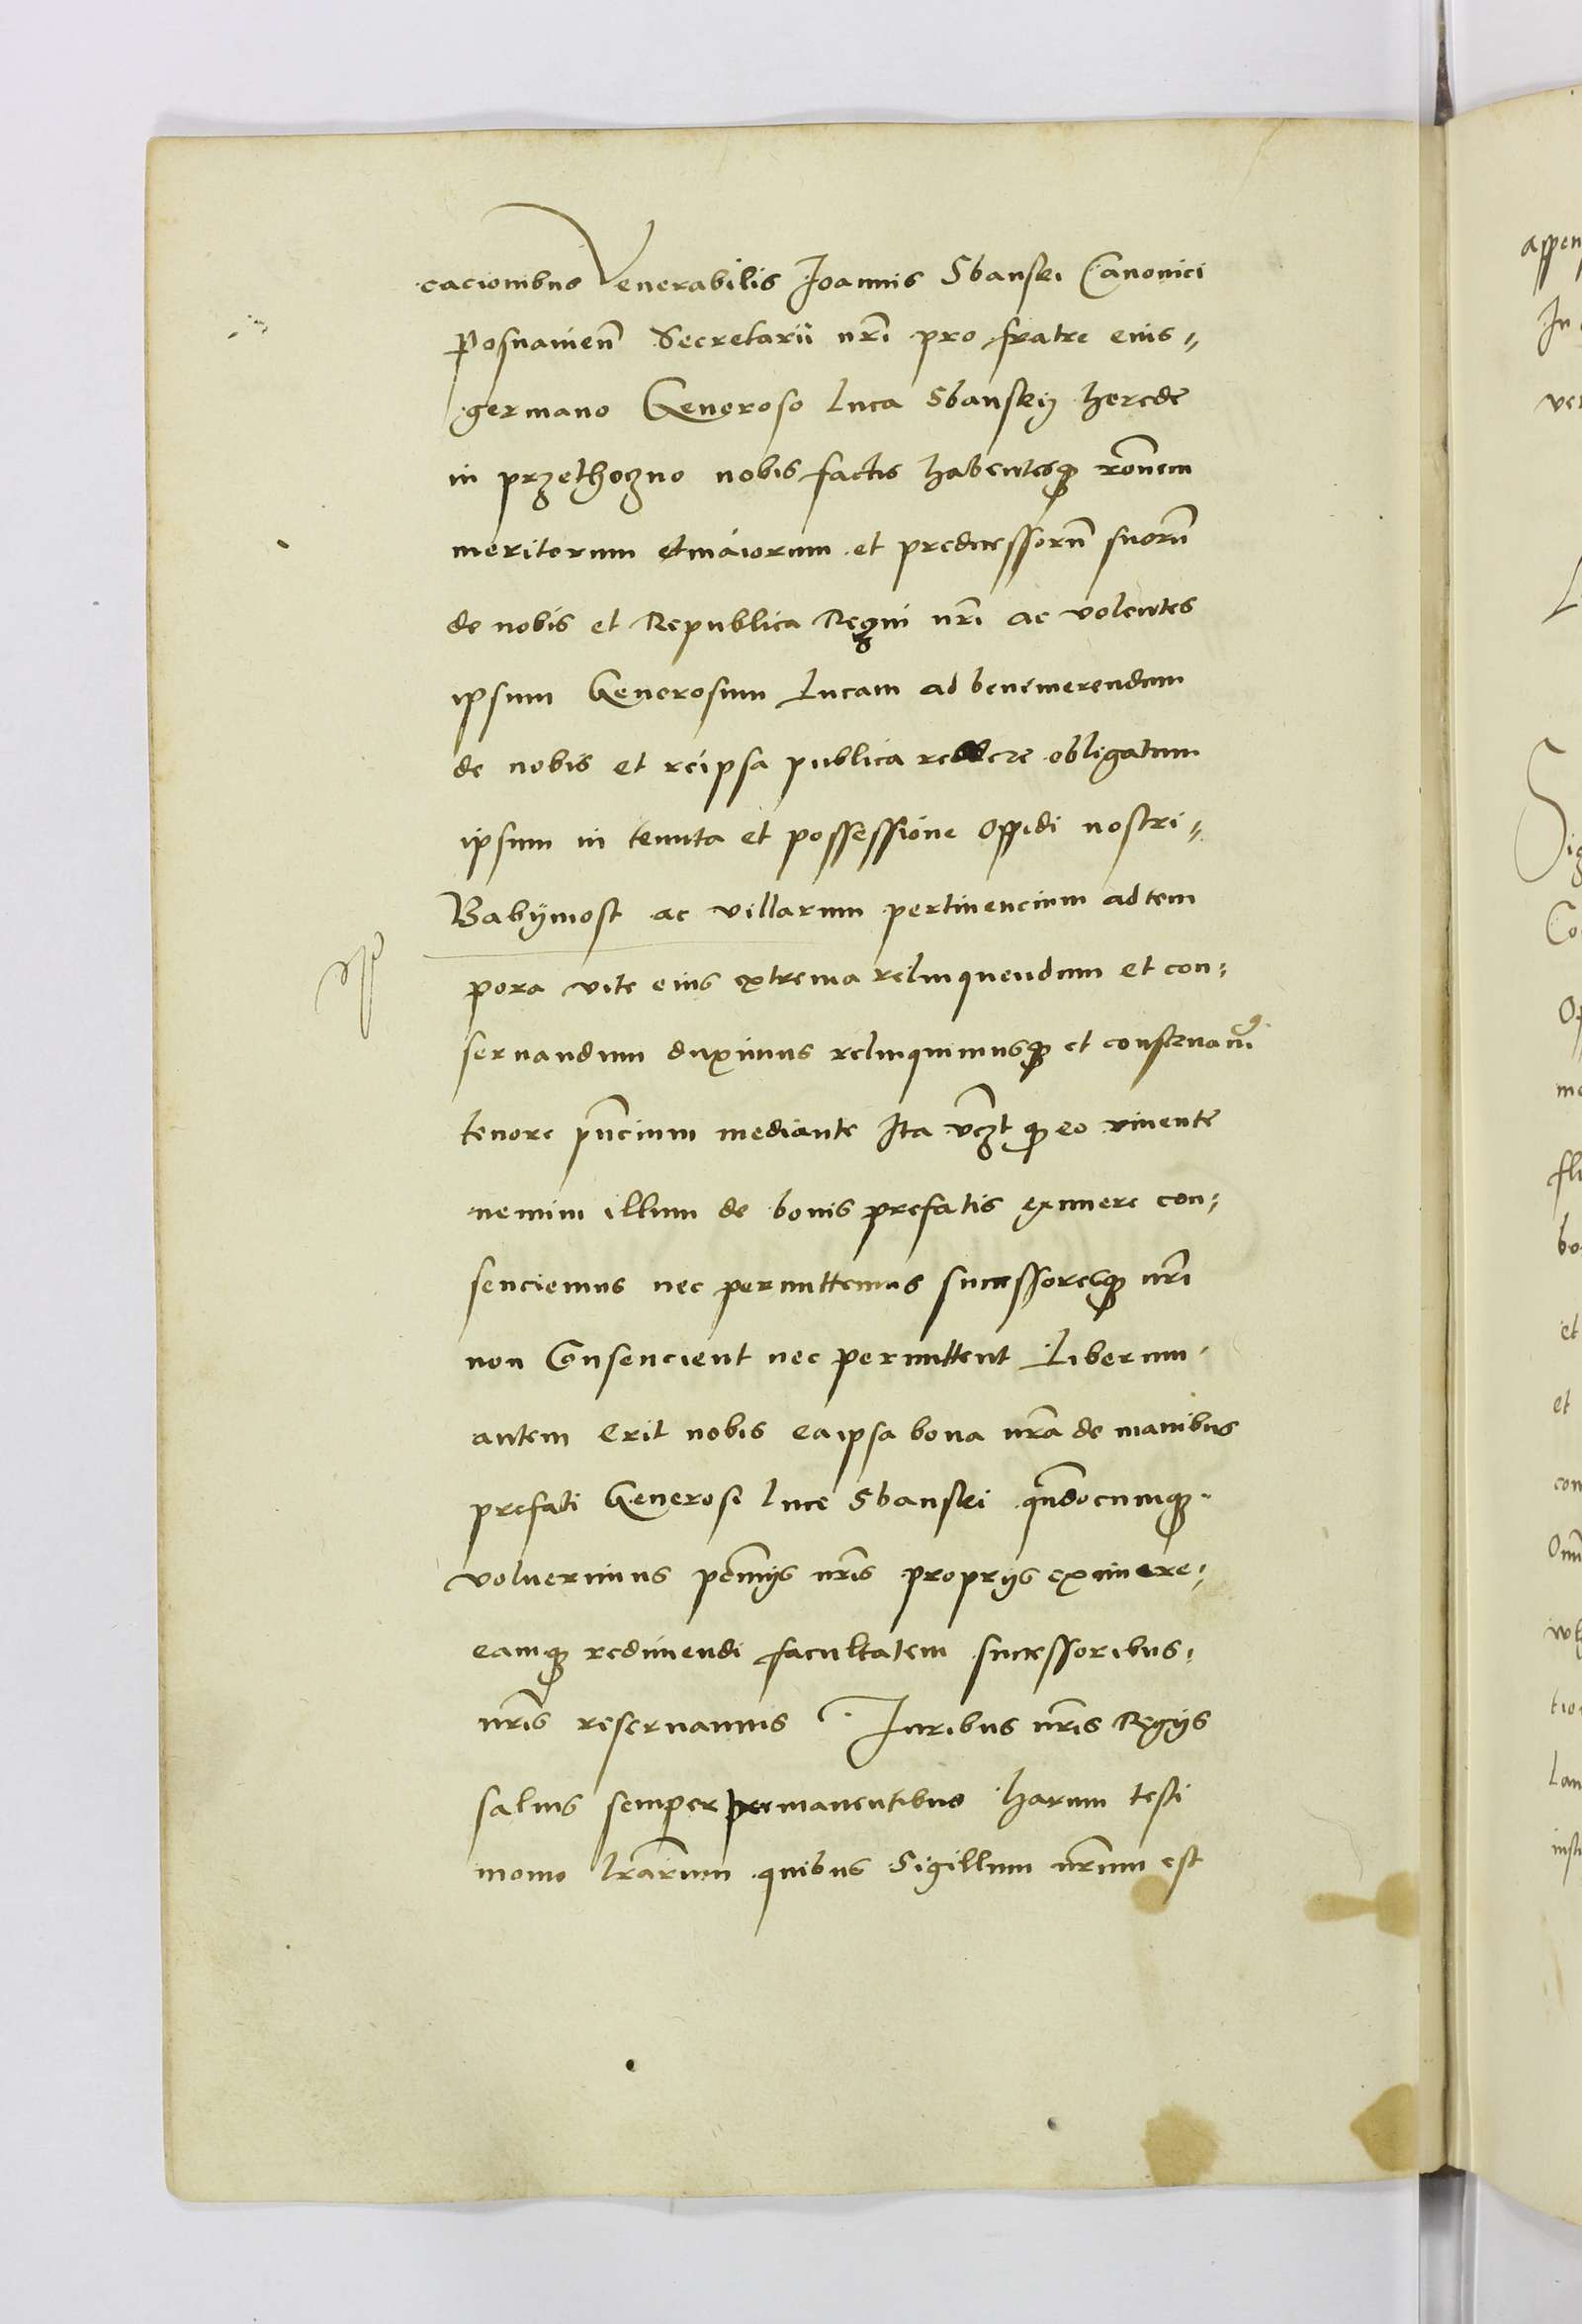 cacionibus Venerabilis Joannis Sbanski Canonici
Posnanien̄ Secretarii nr̄i pro fratre eius
germano Generoso Luca Sbanskij herede
in przethoczno nobis factis habentesq̨ ron̄em
meritorum et maiorum et predecessorū suorū
de nobis et Republica Regni nr̄i ac volentes
ipsum Generosum Lucam ad benemerendum
de nobis et reipsa publica reddere obligatum
ipsum in tenuta et possessione Oppidi nostri
Babijmost ac villarum pertinencium ad tem
pora vite eius extrema relinquendum et con-
servandum duximus relinquimusq̨ et conservam9
tenore pn̄cium mediante Ita vcz̄t q̨ eo vivente
nemini illum de bonis prefatis eximere con-
senciemus nec permittemus successoresq̨ nr̄i
non Consencient nec permittent Liberum
autem Erit nobis ea ipsa bona nr̄a de manibus
prefati Generosi Luce Sbanski qn̄documq̨
voluerimus pec̄nijs nr̄is proprijs eximere
eamq̨ redimendi facultatem successoribus
nr̄is reservamus Juribus nr̄is Regijs
salvis semper permanentibus harum testi
monio lr̄arum quibus Sigillum nr̄um est
appen
In